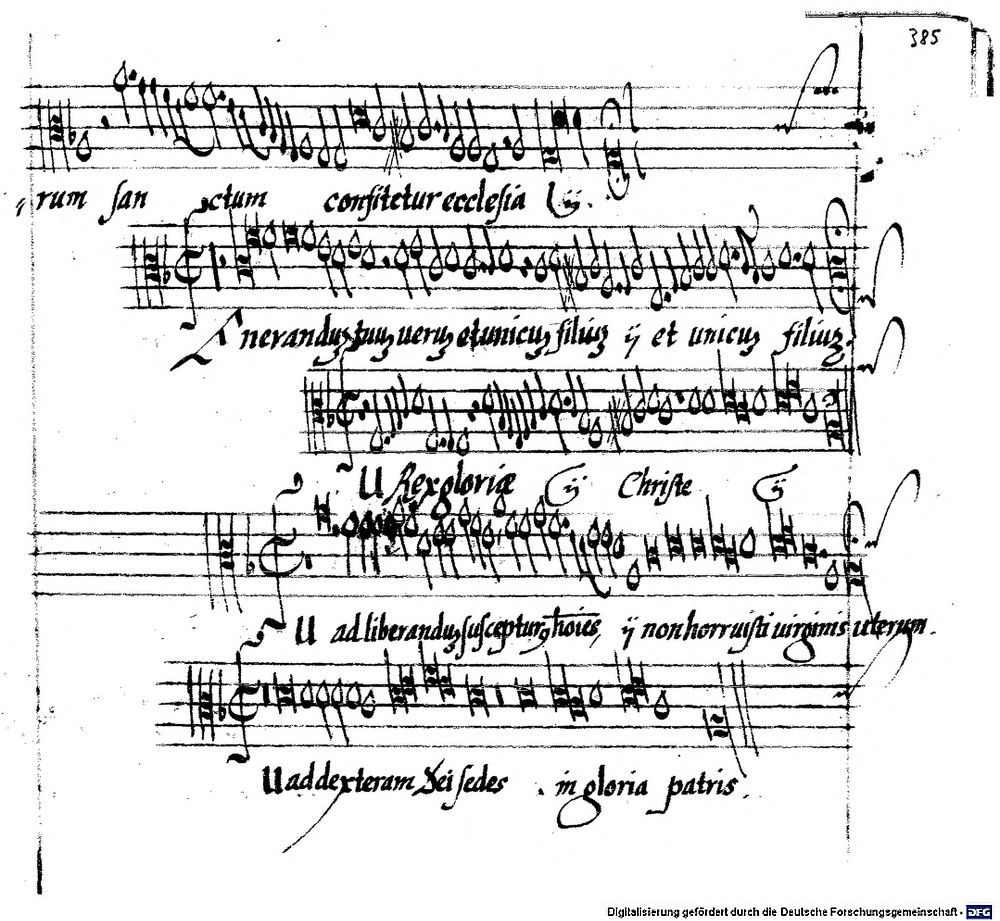 385
rum san ctum confitetur ecclesia ij.
nerandus tuus verus et unicus filius ij et unicus filius.
U Rex gloriæ ij Christe ij
U ad liberandus suscepturus hoies ij non horruisti virginis uterum.
U ad dexteram Dei sedes . in gloria patris.
Digitalisierung gefördert durch die Deutsche Forschungsgemeinschaft - DFG